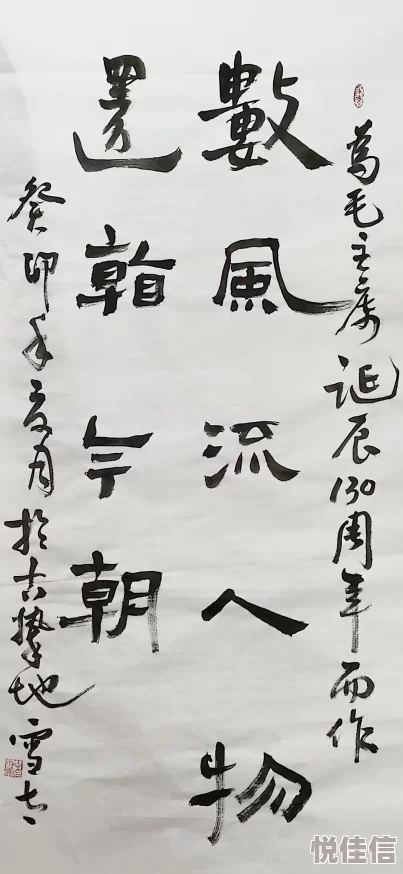 為毛主席诞辰130周年而作
數風流人物
還看今朝
癸卯年夏月於古摯地雪
悦佳信